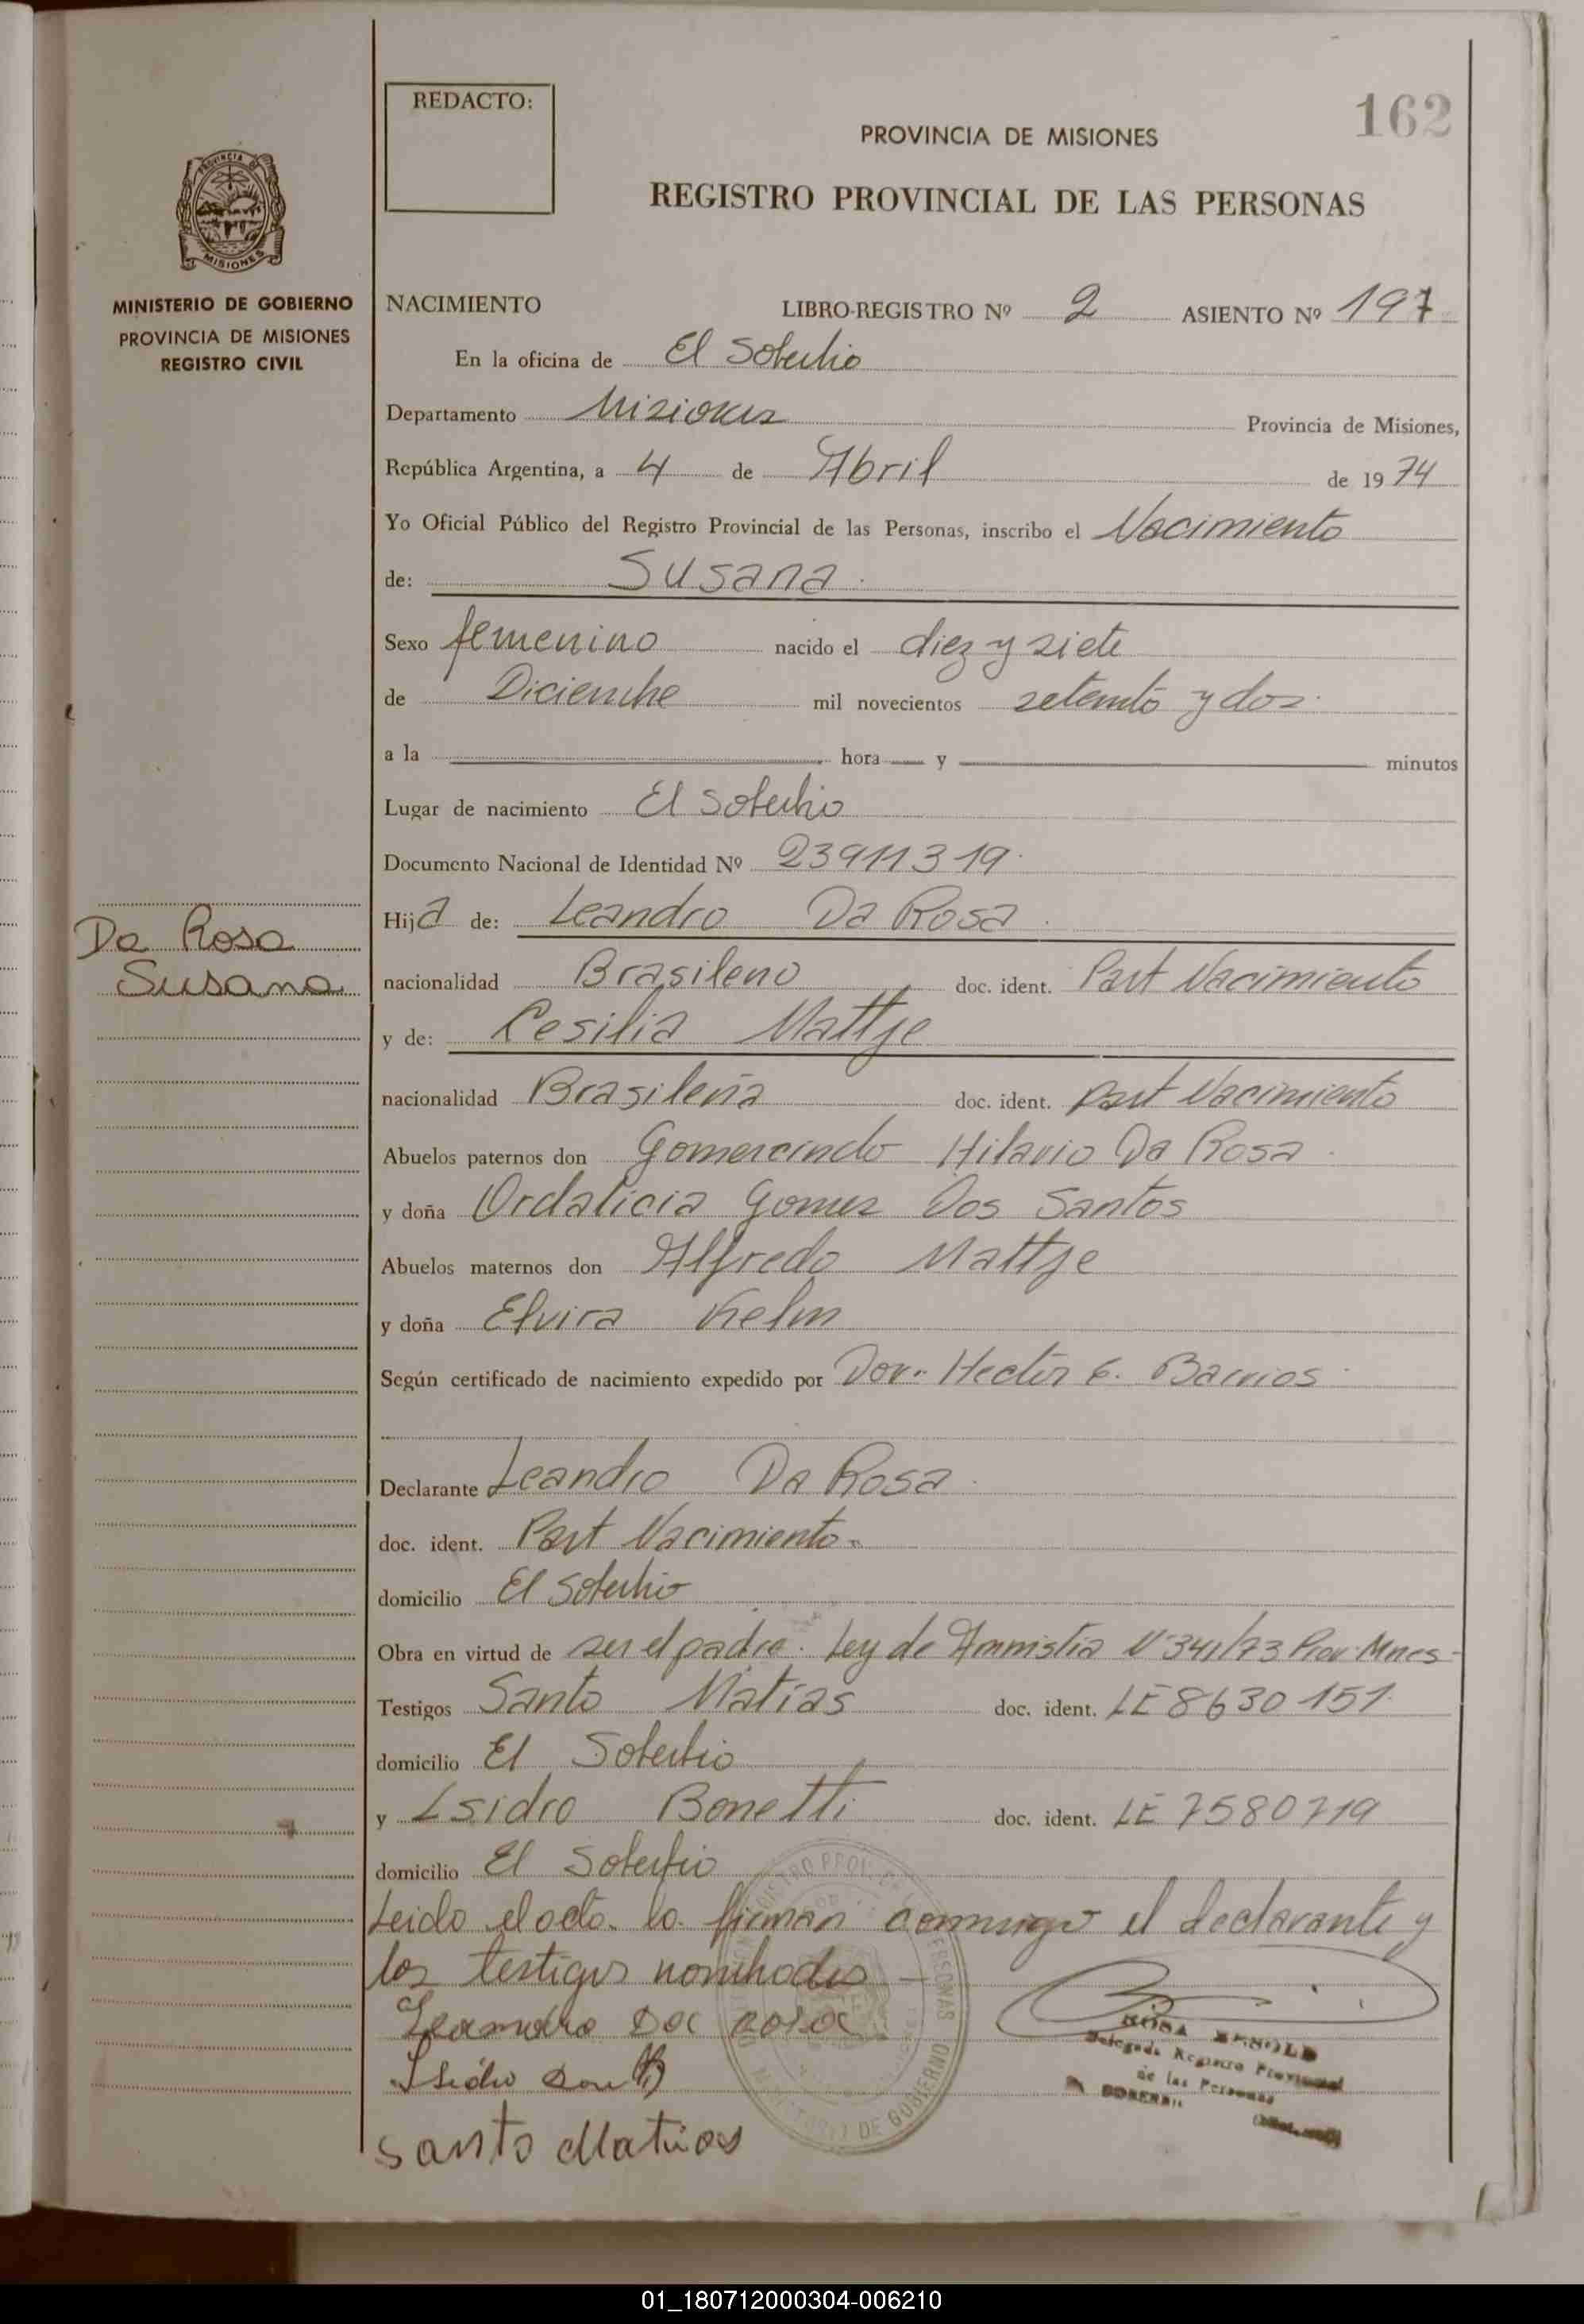 REDACTO:
162
PROVINCIA DE MISIONES
REGISTRO PROVINCIAL DE LAS PERSONAS
PROVINCIA DE
MISIONES
MINISTERIO DE GOBIERNO
PROVINCIA DE MISIONES
REGISTRO CIVIL
NACIMIENTO LIBRO-REGISTRO Nº 2 ASIENTO Nº 197
En la oficina de El Soberbio
Departamento Misiones Provincia de Misiones,
República Argentina, a 4 de Abril de 1974
Yo Oficial Público del Registro Provincial de las Personas, inscribo el Nacimiento
de: Susana.
Sexo femenino nacido el diez y siete
de Diciembre mil novecientos setenta y dos.
a la hora y minutos
Lugar de nacimiento El Soberbio
Documento Nacional de Identidad Nº 23911319.
Da Rosa
Susana
Hija de: Leandro Da Rosa.
nacionalidad Brasileno doc. ident. Part Nacimiento
y de: Cesilia Mattje
nacionalidad Brasileña doc. ident. Part Nacimiento
Abuelos paternos don Gomercindo Hilario Da Rosa.
y doña Ordalicia Gomes Dos Santos
Abuelos maternos don Alfredo Mattje
y doña Elvira Kelm
Según certificado de nacimiento expedido por Hector E. Barrios.
Declarante Leandro Da Rosa.
doc. ident. Part Nacimiento.
domicilio El Soberbio
Obra en virtud de ser el padre. Ley de Amnistia Nº 341/73 Prov. Mnes-
Testigos Santo Matías doc. ident. LE 8630151.
domicilio El Soberbio
y Isidro Bonetti doc. ident. LE 7580719
domicilio El Soberbio
Leido el acto. lo firman conmigo el declarante y
los testigos nombrados
Leandro Da rosa
Isidro
Santo Matias
ROSA
Delegada Registro Provincial
de las Personas
DE GOBIERNO
01_180712000304-006210